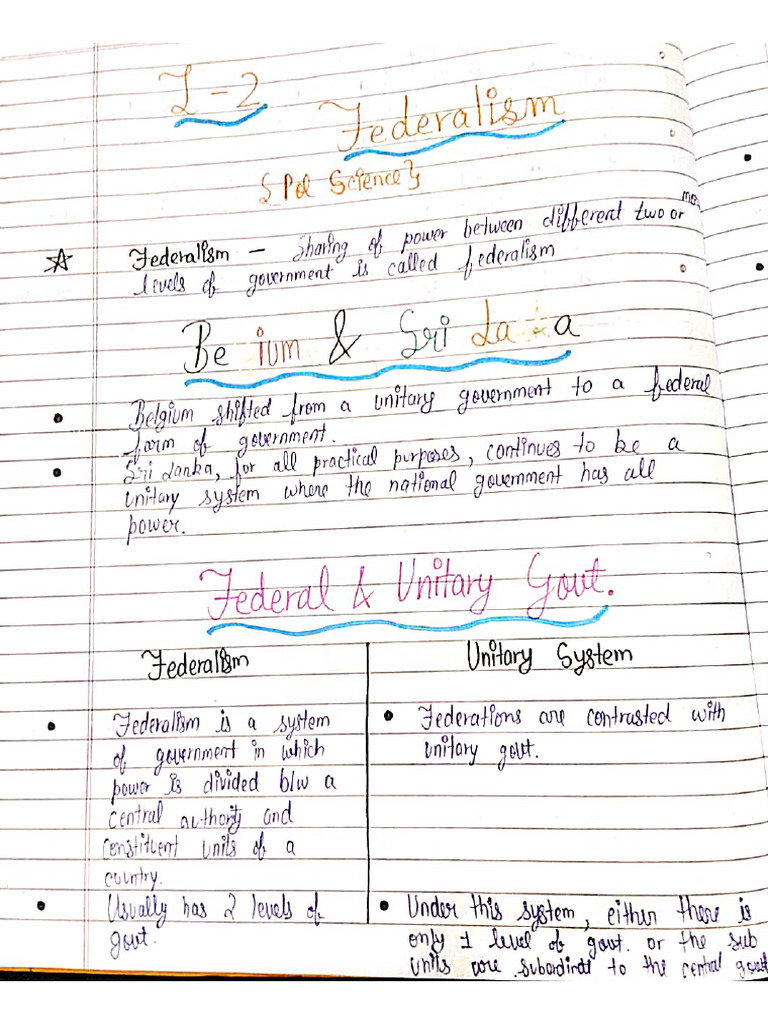 L-2
Federalism
{Pol Science}
Federalism - Sharing of power between different two or more
levels of government is called federalism
Be ium & Sri La a
Belgium shifted from a unitary government to a federal
form of government.
Sri Lanka, for all practical purposes, continues to be a
unitary system where the national government has all
power.
Federal & Unitary Govt.
Federalism
Federalism is a system
of government in which
power is divided b/w a
central authority and
constituent units of a
country.
Usually has 2 levels of
govt.
Unitary System
Federations are contrasted with
unitary govt.
Under this system, either there is
only 1 level of govt. or the sub
units are subordinate to the central govt